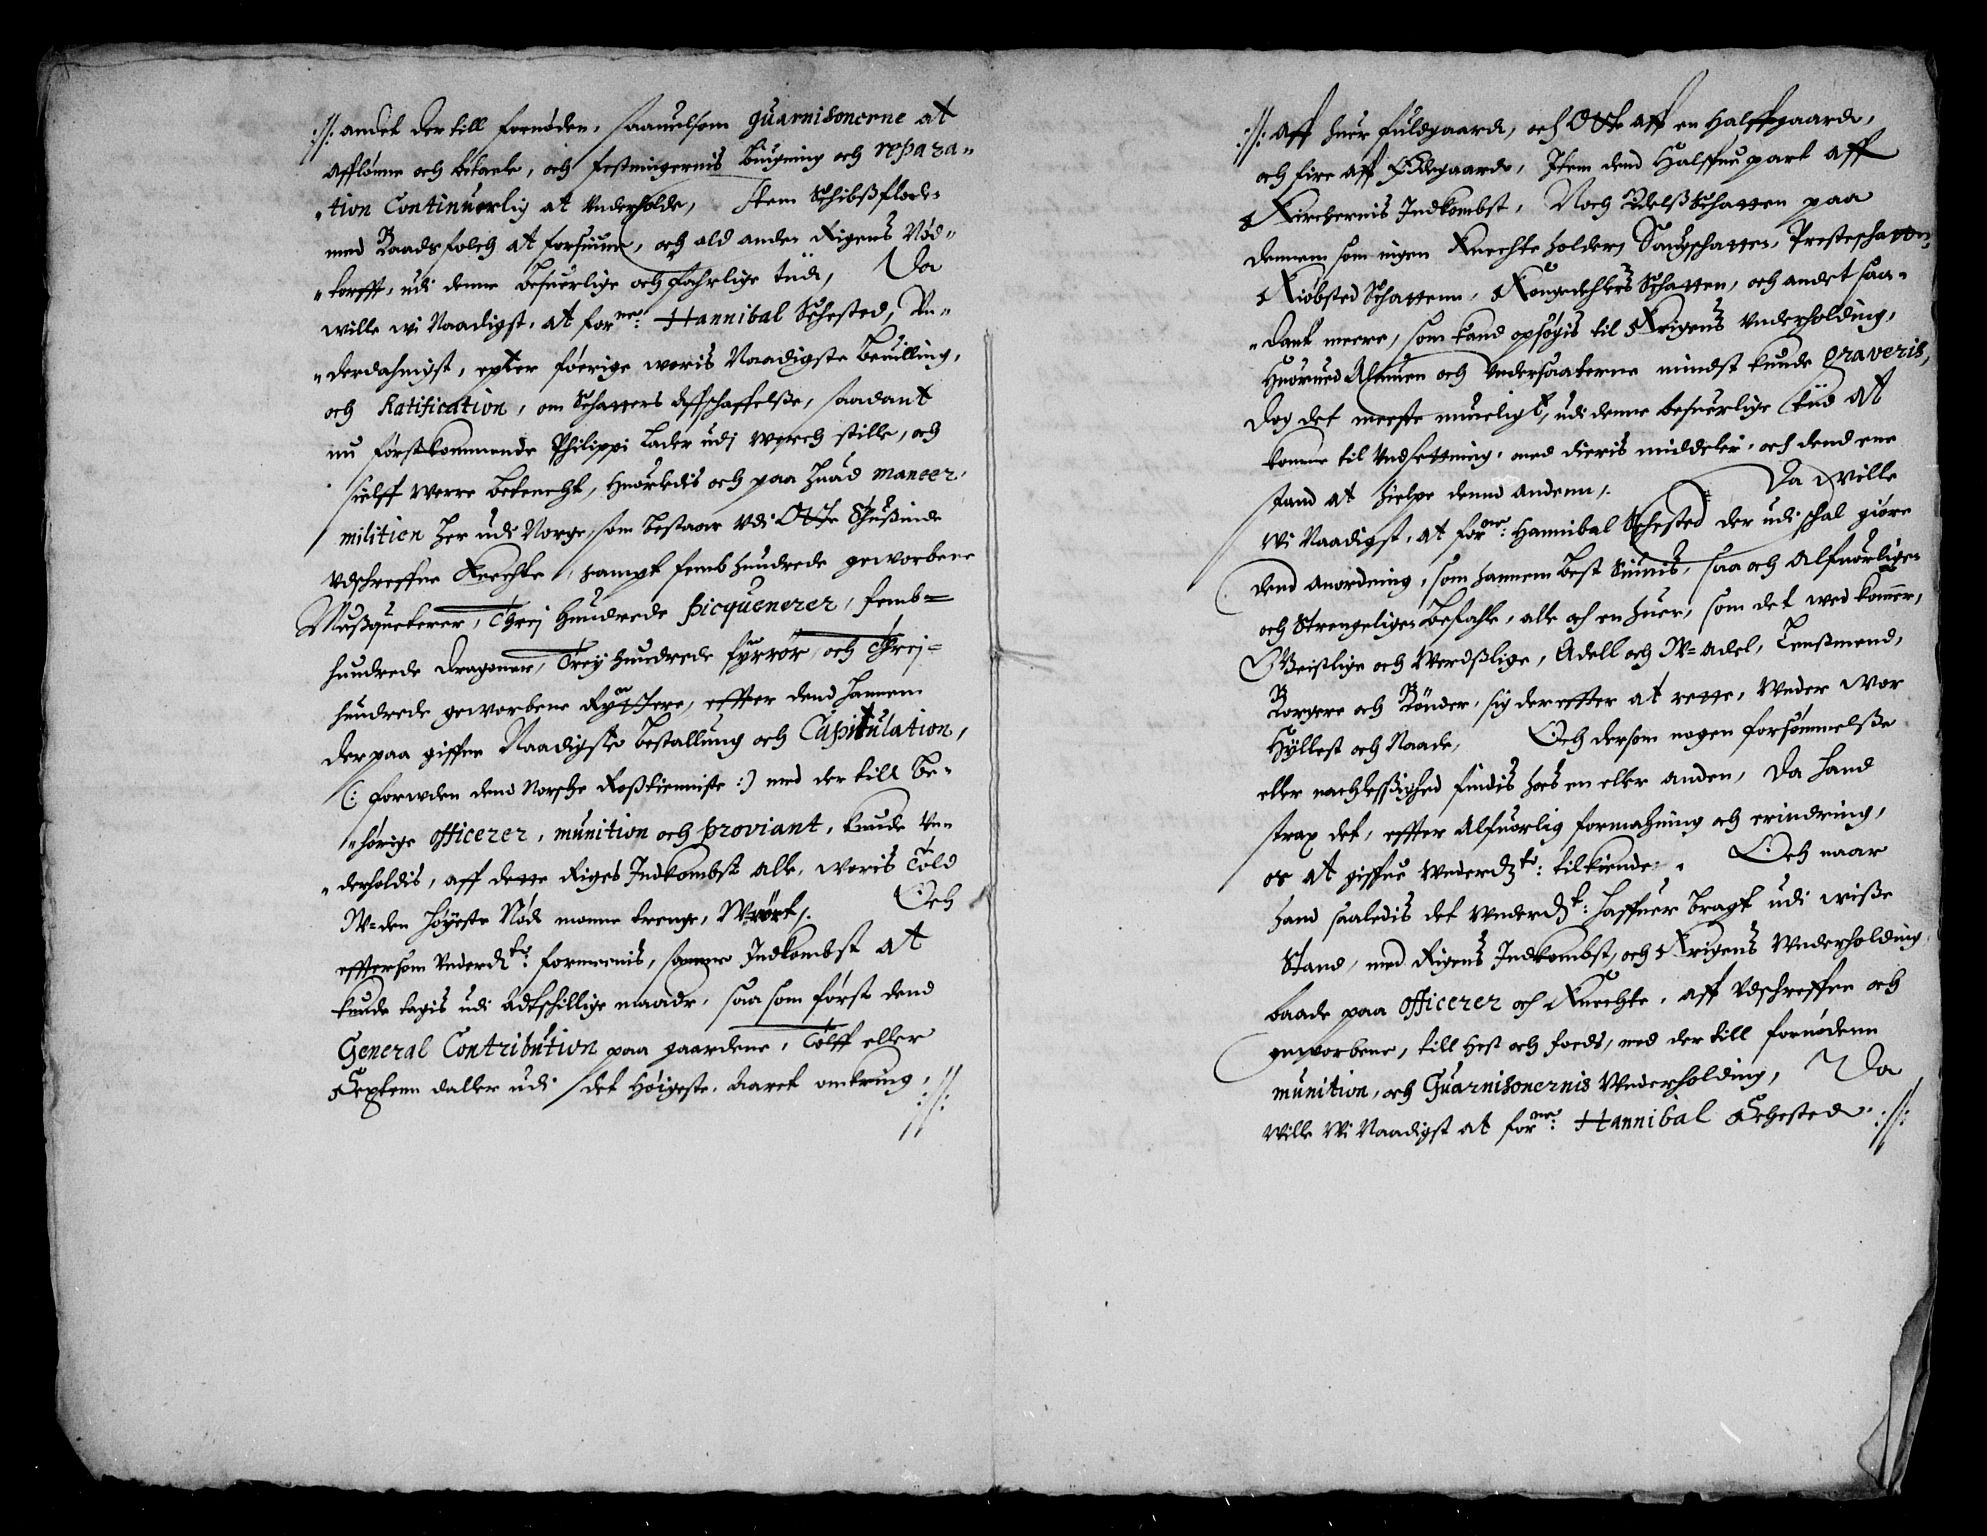 :/: andet der till fornøden, saauelsom guarnisonerne at
afflønne och betaele, och festningernis bugning och repara-
„tion Continuerlig at underholde, Item Schibßflode
med Baadsfolch at forsiune, och ald anden Rigens Nød-
„torfft, udi denne besuerlige och fahrlige tiid, Da
wille wi Naadigst, at forne: Hannibal Sehested, Un-
„derdahnigst, epter føerige woris Naadigste bevilling,
och Ratification, om Schatters Affschaffelße, saadant
nu førstkommende Philippi Lader udi werch stille, och
sielff werre betencht, huorledis och paa huad maneer
militien her udi Norge, som bestaar udi Otte Thusinde
Udschreffne Knechte, sampt femb hundrede geworbene
Mußqueterer, Threj Hundrede picquenerer, femb=
hundrede Dragoner, Trey hundrede fyrror, och Threj=
hundrede geworbene Ryttere, effter dend hannem
der paa giffne Naadigste bestallung och Capitulation,
(: forwden dend Norsche Roßtienniste :) med der till be-
„hørige officerer, munition och proviant, kunde Un-
„derholdis, aff dette Riges Indkombst alle, woris Told
W=den høyeste Nød monne trenge, W=rørt/. Och
efftersom Underdte: formeenis, samme Indkombst at
kunde tagis udi adtschillige maade, saa som først dend
General Contribution paa gaardene, Tolff eller
Sexten daller udi det høigeste, Aaret omkring, :/:
:/: aff huer fuldgaard, och Otte aff en halffgaard,
och fire aff Ødegaarde, Item dend halffue part aff
Kirckernis Indkombst, Noch Odelß Schatten paa
dennem som ingen Knechte holder, Saugschatten, Presteschatten,
Kiøbsted Schattenn, Kongedehlers Schatten, och andet saa-
„dant meere, som kand opsøgis til Krigens Underholding,
huorued Almuen och Undersaatterne mindst kunde graveris,
dog det meeste mueligt, udi denne besuerlige tiid at
komme til Undsettning, med dieris middeler, och dend ene
stand at hielpe dennd andenn/. Da wille
wi Naadigst, at forne: Hannibal Sehested der udi schal giøre
dend anordning, som hannem best Siunis, saa och Alfuorligen
och Strengeligen befahle, alle och en huer, som det wed kommer,
Geistlige och Werdßlige, Adell och W=adel, Lenßmend,
Borgere och Bønder, sig dereffter at rette, Under wor
Hyllest och Naade, Och dersom nogen forsømmelße
eller nachleßighed findis hos en eller anden, da hand
strax det, effter Alfuorlig formahning och erindring,
os at giffue Underdte: tilkiende. Och naar
hand saaledis det Underdt: haffuer bragt udi wiße
Stand, med Rigens Indkombst, och Krigens Underholding,
baade paa officerer och Knechte, aff Udschreffne och
geworbene, till hest och foeds, med der till fornødenn
munition, och Guarnisonernis Underholding, Da
Wille Wi Naadigst at forne: Hannibal Sehested :/: